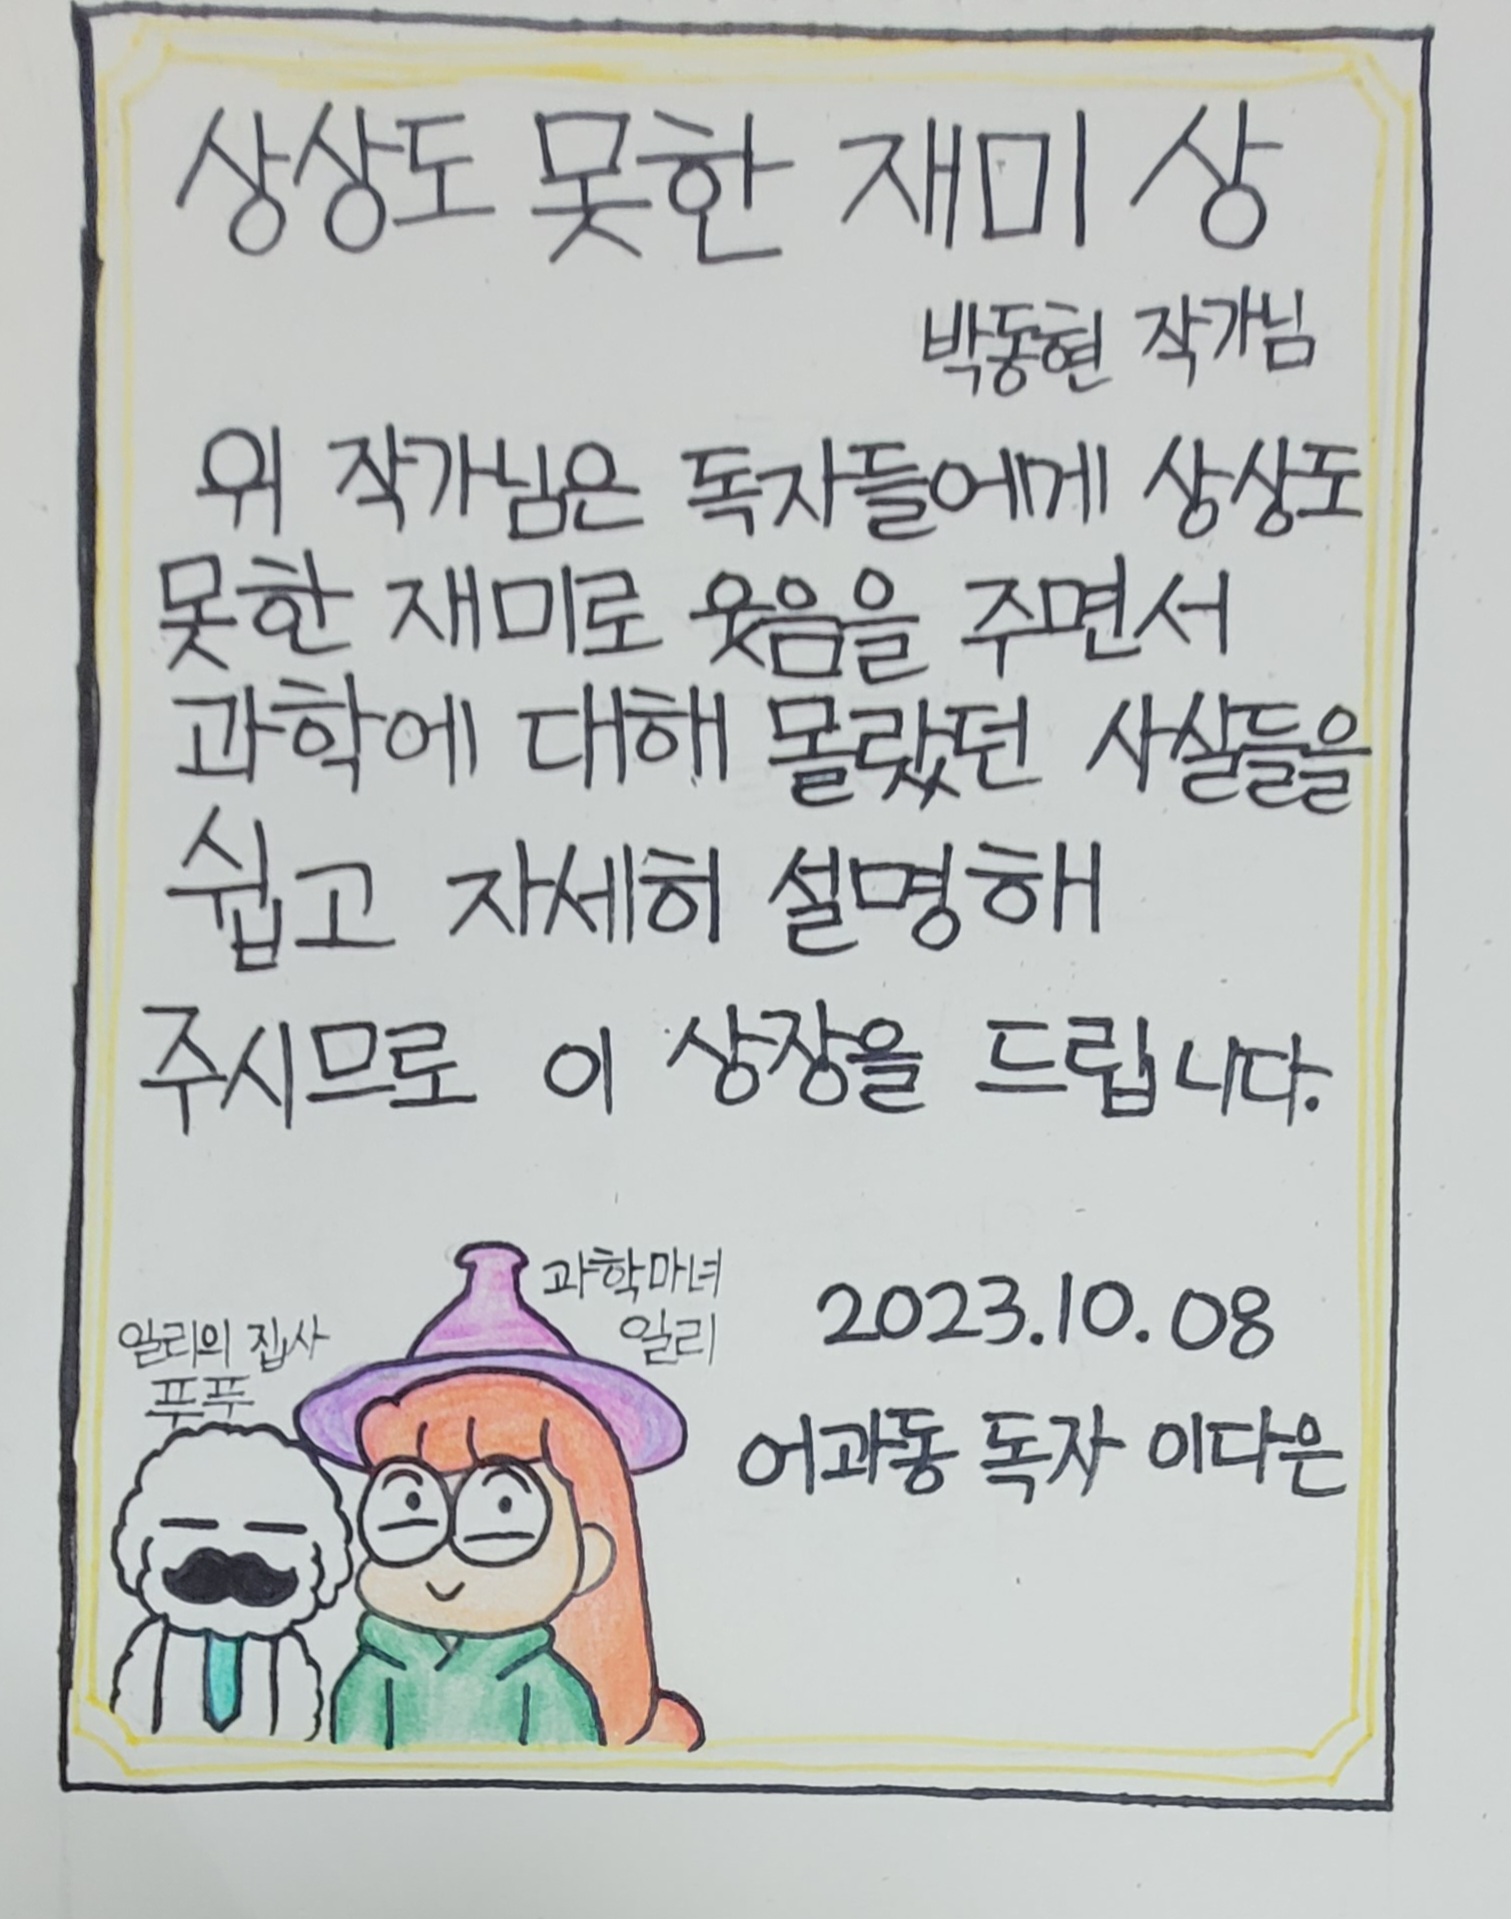 상상도 못한 재미 상
박동현 작가님
위 작가님은 독자들에게 상상도
못한 재미로 웃음을 주면서
과학에 대해 몰랐던 사살들을
쉽고 자세히 설명해
주시므로 이 상장을 드립니다.
과학마녀
일리
일리의 집사
푸푸
2023.10.08
어과동 독자 이다은